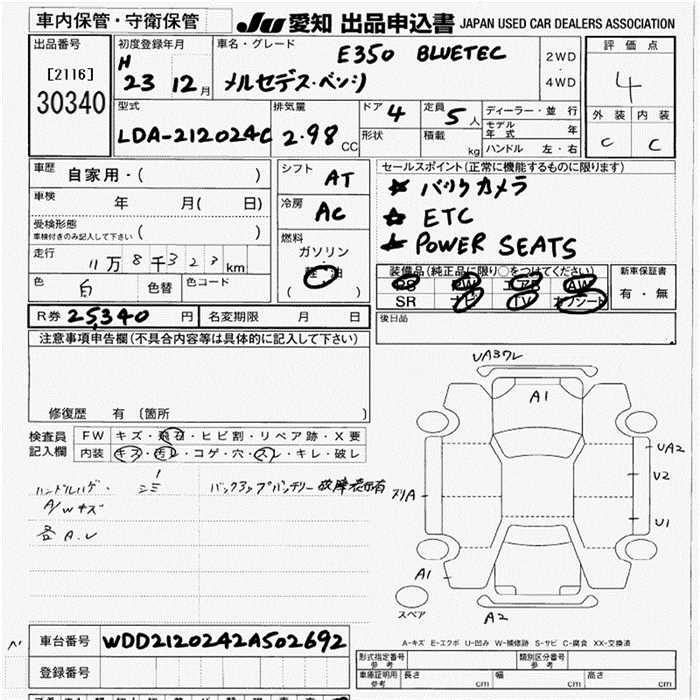 車内保管・守衛保管
JU 愛知 出品申込書 JAPAN USED CAR DEALERS ASSOCIATION
出品番号
[2116]
30340
初度登録年月
H
23 12月
車名・グレード
E350 BLUETEC
メルセデス・ベンツ
2WD
・
4WD
評価点
4
外装 内装
C C
型式
LDA-212024C
排気量
2.98 CC
ドア 4
形状
定員 5人
積載 kg
ディーラー・並行
モデル年式 年
ハンドル 左・右
車歴
自家用・( )
車検 年 月( 日)
受検形態
車検付きのみ記入して下さい ( )
走行
11万8千323km
色 白 色替 色コード
シフト AT
冷房 AC
燃料
ガソリン
・
軽油
( )
セールスポイント(正常に機能するものに限ります)
☆ バックカメラ
☆ ETC
☆ POWER SEATS
装備品(純正品に限り○をつけてください)
PS PW エアB AW
SR ナビ TV カワシート
新車保証書
有・無
R券 25,340 円 名変期限 月 日
後日品
注意事項申告欄(不具合内容等は具体的に記入して下さい)
修復歴 有 〔箇所 〕
検査員
記入欄
FW キズ・飛石・ヒビ割・リペア跡・X要
内装 キズ・汚レ・コゲ・穴・スレ・キレ・破レ
ハンドルハゲ・シミ
バックアップバッテリー故障表示有
A/Wキズ
各A.U
UA3ワレ
A1
UA2
U2
U1
スリA
A1
A2
スペア
A-キズ E-エクボ U-凹み W-補修跡 S-サビ C-腐食 XX-交換済
車台番号 WDD2120242A502692
登録番号
形式指定番号
参考
類別区分番号
参考
車庫証明用
参考
長さ cm 幅 cm 高さ cm